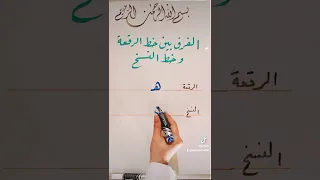 بسم الله الرحمن الرحيم
الفرق بين خط الرقعة
و خط النسخ
الرقعة
هـ
النسخ